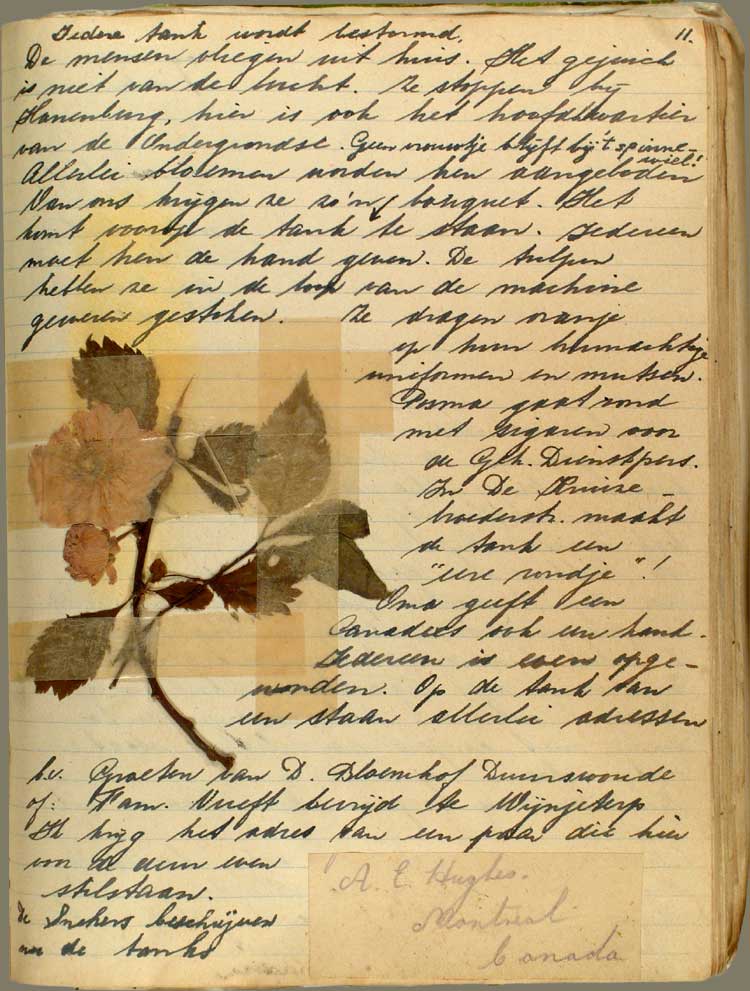 Iedere tank wordt bestormd.
11.
De mensen vliegen uit huis. Het gejuich
is niet van de lucht. Ze stoppen bij
Hanenburg, hier is ook het hoofdkwartier
van de Ondergrondse. Geen vrouwtje blijft bij 't spinne-
wiel!
Allerlei bloemen worden hen aangeboden
Van ons krijgen ze zo'n bouquet. Het
komt voorop de tank te staan. Iedereen
moet hen de hand geven. De tulpen
hebben ze in de loop van de machine
geweren gestoken. Ze dragen oranje
op hun
uniformen en mutsen.
Posma gaat rond
met sigaren voor
de Geh. Dienstpers.
In De Kruize-
broederstr. maakt
de tank een
"ere rondje"!
Oma geeft een
Canadees ook een hand.
Iedereen is even opge-
wonden. Op de tank van
een staan allerlei adressen
b.v. Groeten van D. Bloemhof Duurswoude
of: Fam. Vueft bevrijd te Wijnjeterp
Ik krijg het adres van een paar die hier
voor de deur even
stilstaan.
De Snekers beschrijven
de tanks
A. E. Hughes.
Montreal
Canada